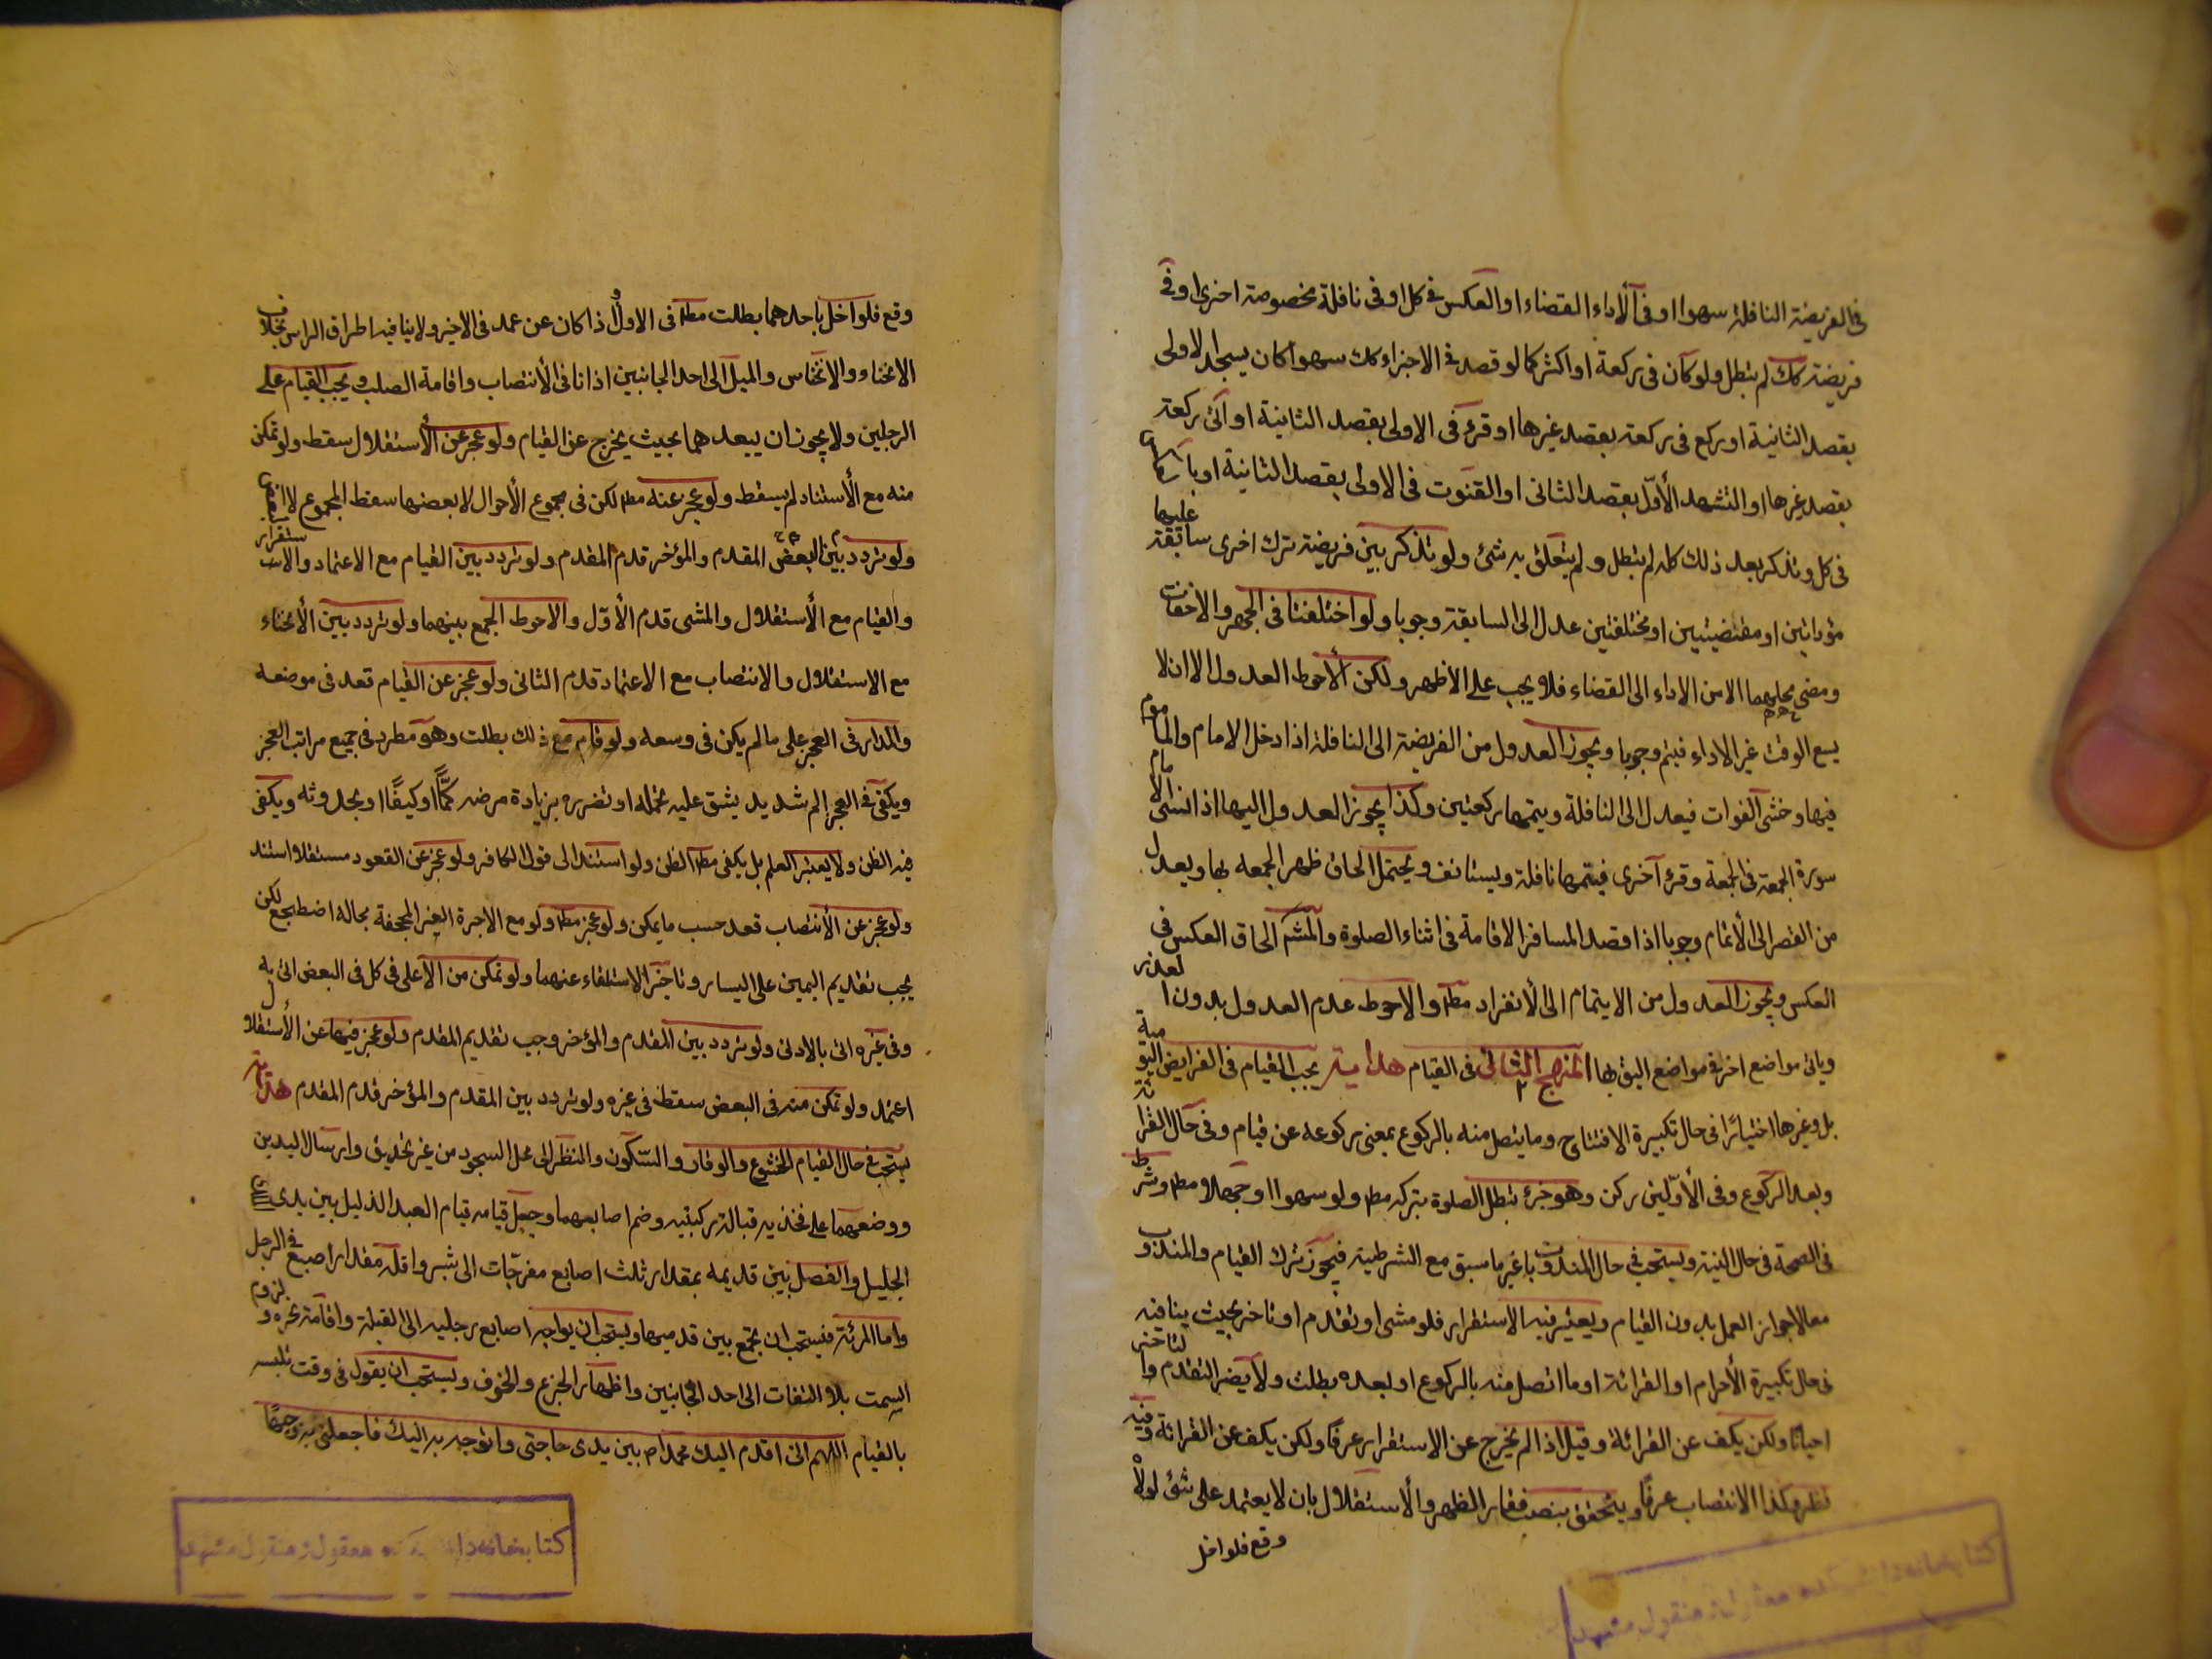 فى الفريضة النافلة سهوا او فى الأداء القضاء او العكس فى كل او فى نافلة مخصوصة اخرى او فى
فريضة كك لم تبطل ولو كان فى ركعة او اكثر كما لو قصد فى الاجزاء كك سهوا كان يسجد الاولى
بقصد الثانية او ركع فى ركعة بقصد غيرها او قرء فى الاولى بقصد الثانية او اتى ركعة
بقصد غيرها او التشهد الأوّل بقصد الثانى او القنوت فى الاولى بقصد الثانية او
فى كل وتذكر بعد ذلك كله لم تبطل ولم يتعلق به شئ ولو تذكر بين فريضة ترك اخرى سابقة عليها
مؤداتين او مقتضيتين او مختلفتين عدل الى السابقة وجوبا ولو اختلفتا فى الجهر والاخفات
ومضى محلهما الا من الاداء الى القضاء فلا يجب على الاظهر ولكن الأحوط العدول الا ان لا
يسع الوقت غير الاداء فيتم وجوبا ويجوز العدول من الفريضة الى النافلة اذا دخل الامام والماموم
فيها وخشى الفوات فيعدل الى النافلة ويتمها ركعتين وكذا يجوز العدول اليها اذا نسى الامام
سورة الجمعة فى الجمعة وقرء اخرى فيتمها نافلة ويستانف ويحتمل الحاق ظهر الجمعه بها ويعدل
من القصر الى الأتمام وجوبا اذا قصد المسافر الاقامة فى اثناء الصلوة والمشهـ الحاق العكس فى
العكس ويجوز العدول من الايتمام الى الأنفراد مطـ والاحوط عدم العدول بدون العذر
وياتى مواضع اخر فى مواضع اليق بها المنهج الثانى فى القيام هداية يجب القيام فى الفرايض اليومية
بل وغيرها اختيارًا فى حال تكبيرة الافتتاح وما يتصل منه بالركوع بمعنى ركوعه عن قيام وفى حال القرائة
وبعد الركوع وفى الأوّلين ركن وهو جزء تبطل الصلوة بتركه مطـ ولو سهوا او جهلا ومطـ وشرط
فى الصحة فى حال النية ويستحب فى حال المندوبات غير ما سبق مع الشرطية فيجوز ترك القيام والمندوب
معا لا جواز العمل بدون القيام ويعتبر فيه الاستقرار فلو مشى او تقدم او تاخر بحيث ينافيه
فى حال تكبيرة الأحرام او القرائة او ما اتصل منه بالركوع او بعده بطلت ولا يضر التقدم والتاخر
احيانًا ولكن يكف عن القرائة وقيل اذا لم يخرج عن الاستقرار عرفًا ولكن يكف عن القرائة وفيه
نظر وكذا الانتصاب عرفًا ويتحقق بنصب فقار الظهر والأستقلال بان لا يعتمد على شئ لولاه
وقع فلو اخل
وقع فلو اخل باحدهما بطلت مطـ فى الاول واذا كان عن عمد فى الاخير ولا ينافيه اطراق الراس بخلاف
الانحناء والانخناس والميل الى احد الجانبين اذا نافى الأنتصاب واقامة الصلب ويجب القيام على
الرجلين ولا يجوز ان يبعدهما بحيث يخرج عن القيام ولو عجز عن الأستقلال سقط ولو تمكن
منه مع الأستناد لم يسقط ولو عجز عنه مطـ لكن فى مجموع الأحوال لا بعضها سقط المجموع لا
ولو تردد بين البعض المقدم والمؤخر قدم المقدم ولو تردد بين القيام مع الاعتماد والاستقرار
والقيام مع الأستقلال والمشى قدم الأوّل والاحوط الجمع بينهما ولو تردد بين الأنحناء
مع الاستقلال والانتصاب مع الاعتماد قدم الثانى ولو عجز عن القيام قعد فى موضعه
والمدار فى العجز على ما لم يكن فى وسعه ولو قام مع ذلك بطلت وهو مطرد فى جميع مراتب العجز
ويكفى فى العجز الم شديد يشق عليه تحمله او تضرره بزيادة مرضه كمًّا او كيفًا او بحدوثه ويكفى
فيه الظن ولا يعتبر العلم بل يكفى مطـ الظن ولو استند الى قول الكافر ولو عجز عن القعود مستقلا استند
ولو عجز عن الأنتصاب قعد حسب ما يمكن ولو عجز مطـ ولو مع الاجرة الغير المجحفة بحاله اضطجع لكن
يجب تقديم اليمين على اليسار وتاخير الاستلقاء عنهما ولو تمكن من الأعلى فى كل فى البعض اتى به
وفى غيره اتى بالادنى ولو تردد بين المقدم والمؤخر وجب تقديم المقدم ولو عجز فيهما عن الأستقلال
اعتمد ولو تمكن منه فى البعض سقط فى غيره ولو تردد بين المقدم والمؤخر قدم المقدم هداية
يستحب فى حال القيام الخشوع والوقار والسّكون والنظر الى محل السجود من غير تحديق وارسال اليدين
ووضعهما على فخذيه قبالة ركبتيه وضم اصابعهما وجعل قيامه قيام العبد الذليل بين يدى
الجليل والفصل بين قدميه بمقدار ثلث اصابع مفرجّات الى شبر واقله مقدار اصبع فى الرجل
واما المرئة فيستحب ان تجمع بين قدميها ويستحب ان يواجه اصابع رجليه الى القبلة واقامة نحره ولزوم
السمت بلا التفات الى احد الجانبين واظهار الجزع والخوف ويستحب ان يقول فى وقت تلبسه
بالقيام اللهم انى اقدم اليك محمدا ص بين يدى حاجتى واتوجه به اليك فاجعلنى به وجيهًا
كتابخانه دانشكده معقول و منقول مشهد
كتابخانه دانشكده معقول و منقول مشهد